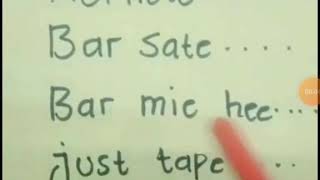 Bar sate ....
Bar mie hee....
just tape ..